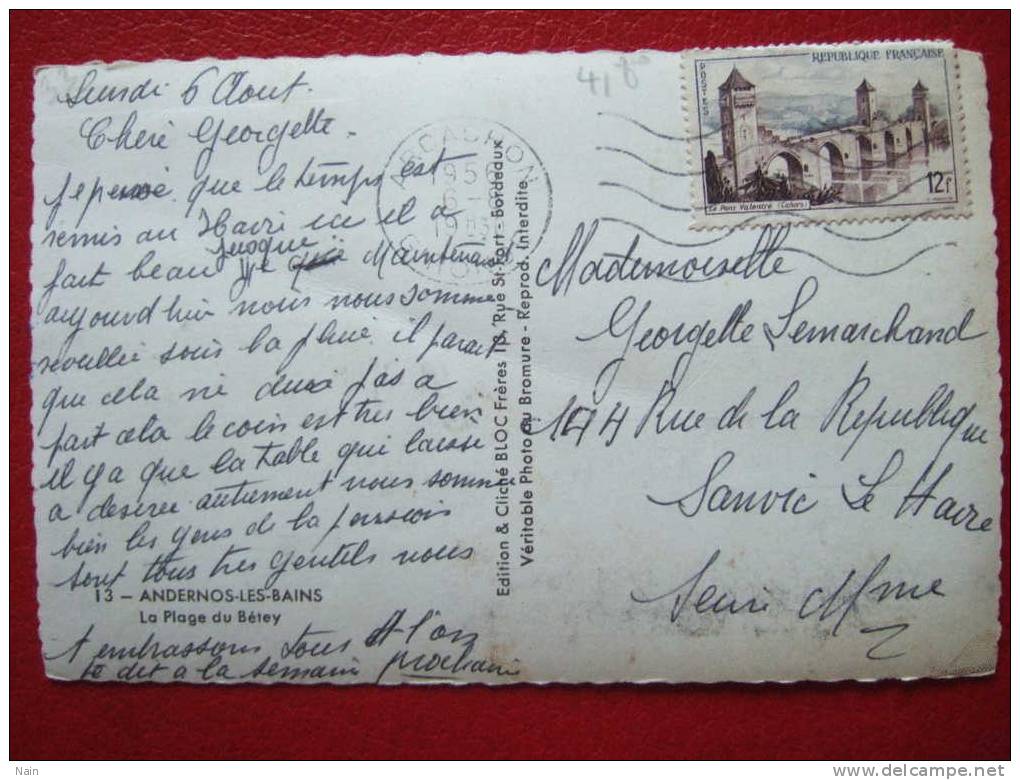 Lundi 6 Aout.
Cheré Georgette.
je pense que le temps est
remis au Havre ici il a
fait beau jusque Maintenant
aujourd'hui nous nous somme
reveillée sous la pluie, il parait
que cela ne dure pas a
part cela le coin est tres bien
il y a que la table qui laisse
a desirer autrement nous somme
bien les gens de la pension
sont tous tres gentils nous
13 — ANDERNOS-LES-BAINS
La Plage du Bétey
t'embrassons tous et l'on
te dit a la semaine prochaine
Edition & Cliché BLOC Frères Rue St-Fort - Bordeaux
Véritable Photo au Bromure - Reprod. Interdite
ARCACHON
1956
GIRONDE
41,80
REPUBLIQUE FRANÇAISE
POSTES
12f
Le Pont Valentré (Cahors)
Mademoiselle
Georgette Lemarchand
144 Rue de la Republique
Sanvic Le Havre
Seine Mme
Nain
http://www.delcampe.net